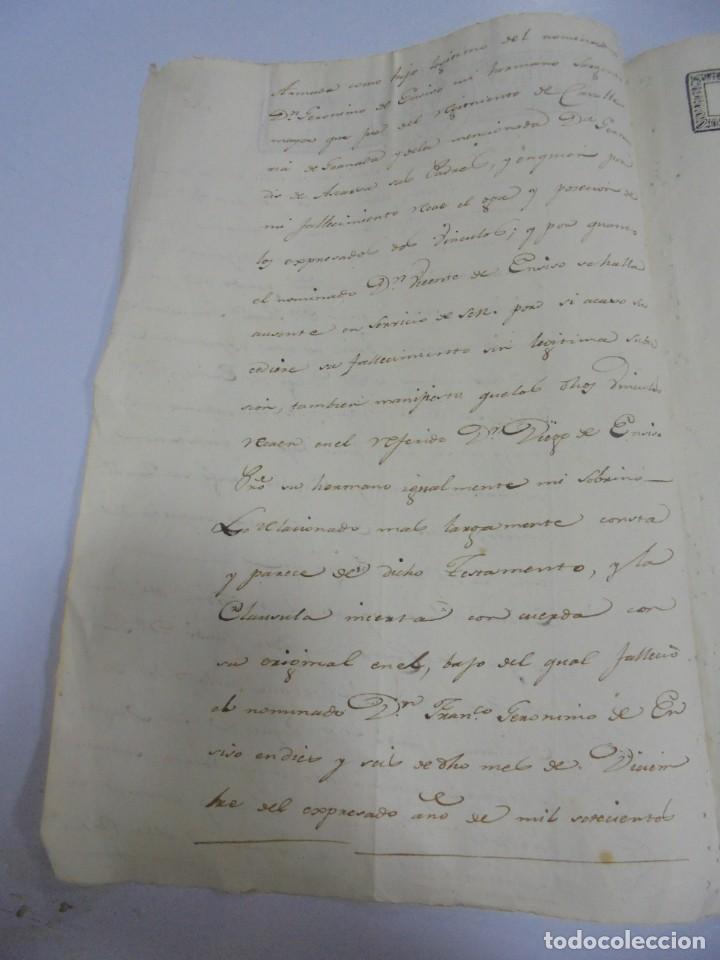 Armada como hijo legitimo del nomenado
Dn. Geronimo de Enciso mi hermano Sargento
mayor que fue del regimiento de Cavalle
ria de Granada y dela mencionada Da.
de sus Padres, y en quien por
mi fallecimiento recae el goze y posecion de
los expresados dos Vinculos; y por quanto
el nominado Dn. Vicente de Enciso se halla
ausente en servicio de S.M. por si acaso su
cediere su fallecimiento sin legitima subce
sion, tambien manifiesta quelos dhos Vinculos
recaen en el referido Dn. Diego de Enciso
Pro su hermano igualmente mi sobrino
Lo relacionado mas largamente consta
y parece de dicho Testamento, y la
Clausula incerta concuerda con
su original en el, bajo del qual fallecio
el nominado Dn. Franco. Geronimo de En
siso en dies y seis de dho mes de Diciem
bre del expresado año de mil setecientos
todocoleccion.net